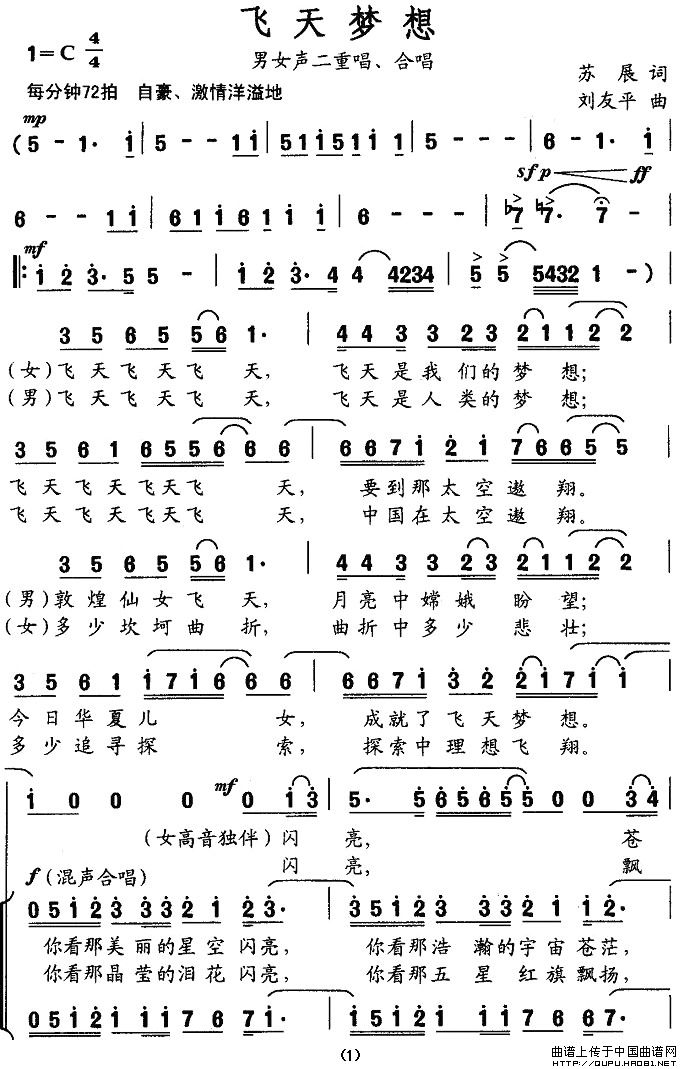 飞天梦想
1=C 4/4
男女声二重唱、合唱
苏展 词
每分钟72拍 自豪、激情洋溢地
刘友平 曲
mp
(5 - 1· i | 5 - - 1 i | 5 1 i 5 1 i i i | 5 - - - | 6 - 1· i
sfp ff
6 - - 1 i | 6 1 i 6 1 i i i | 6 - - - | b7 b7· 7 -
mf
‖: i 2 3· 5 5 - | i 2 3· 4 4 4234 | 5 5 5432 1 - )
3 5 6 5 5 6 1· | 4 4 3 3 2 3 2 1 1 2 2
(女)飞天飞天飞 天, 飞天是我们的梦 想;
(男)飞天飞天飞 天, 飞天是人类的梦 想;
3 5 6 1 6 5 5 6 6 6 | 6 6 7 i 2 1 7 6 6 5 5
飞天飞天飞天飞 天, 要到那太空遨 翔。
飞天飞天飞天飞 天, 中国在太空遨 翔。
3 5 6 5 5 6 1· | 4 4 3 3 2 3 2 1 1 2 2
(男)敦煌仙女飞 天, 月亮中嫦娥 盼望;
(女)多少坎坷曲 折, 曲折中多少 悲壮;
3 5 6 1 i 7 i 6 6 6 | 6 6 7 i 3 2 2 i 7 i i
今日华夏儿 女, 成就了飞天梦 想。
多少追寻探 索, 探索中理想飞 翔。
mf
i 0 0 0 0 i 3 | 5· 5 6 5 6 5 5 0 0 3 4
(女高音独伴)闪 亮, 苍
闪 亮, 飘
f (混声合唱)
0 5 i 2 3 3 3 2 i 2 3· | 3 5 i 2 3 3 3 2 i 2 3·
你看那美丽的星空闪亮, 你看那浩瀚的宇宙苍茫,
你看那晶莹的泪花闪亮, 你看那五星红旗飘扬,
0 5 i 2 i i i 7 6 7 i· | i 5 i 2 i i i 7 6 7 i·
(1)
曲谱上传于中国曲谱网
HTTP://QUPU.HAO81.NET